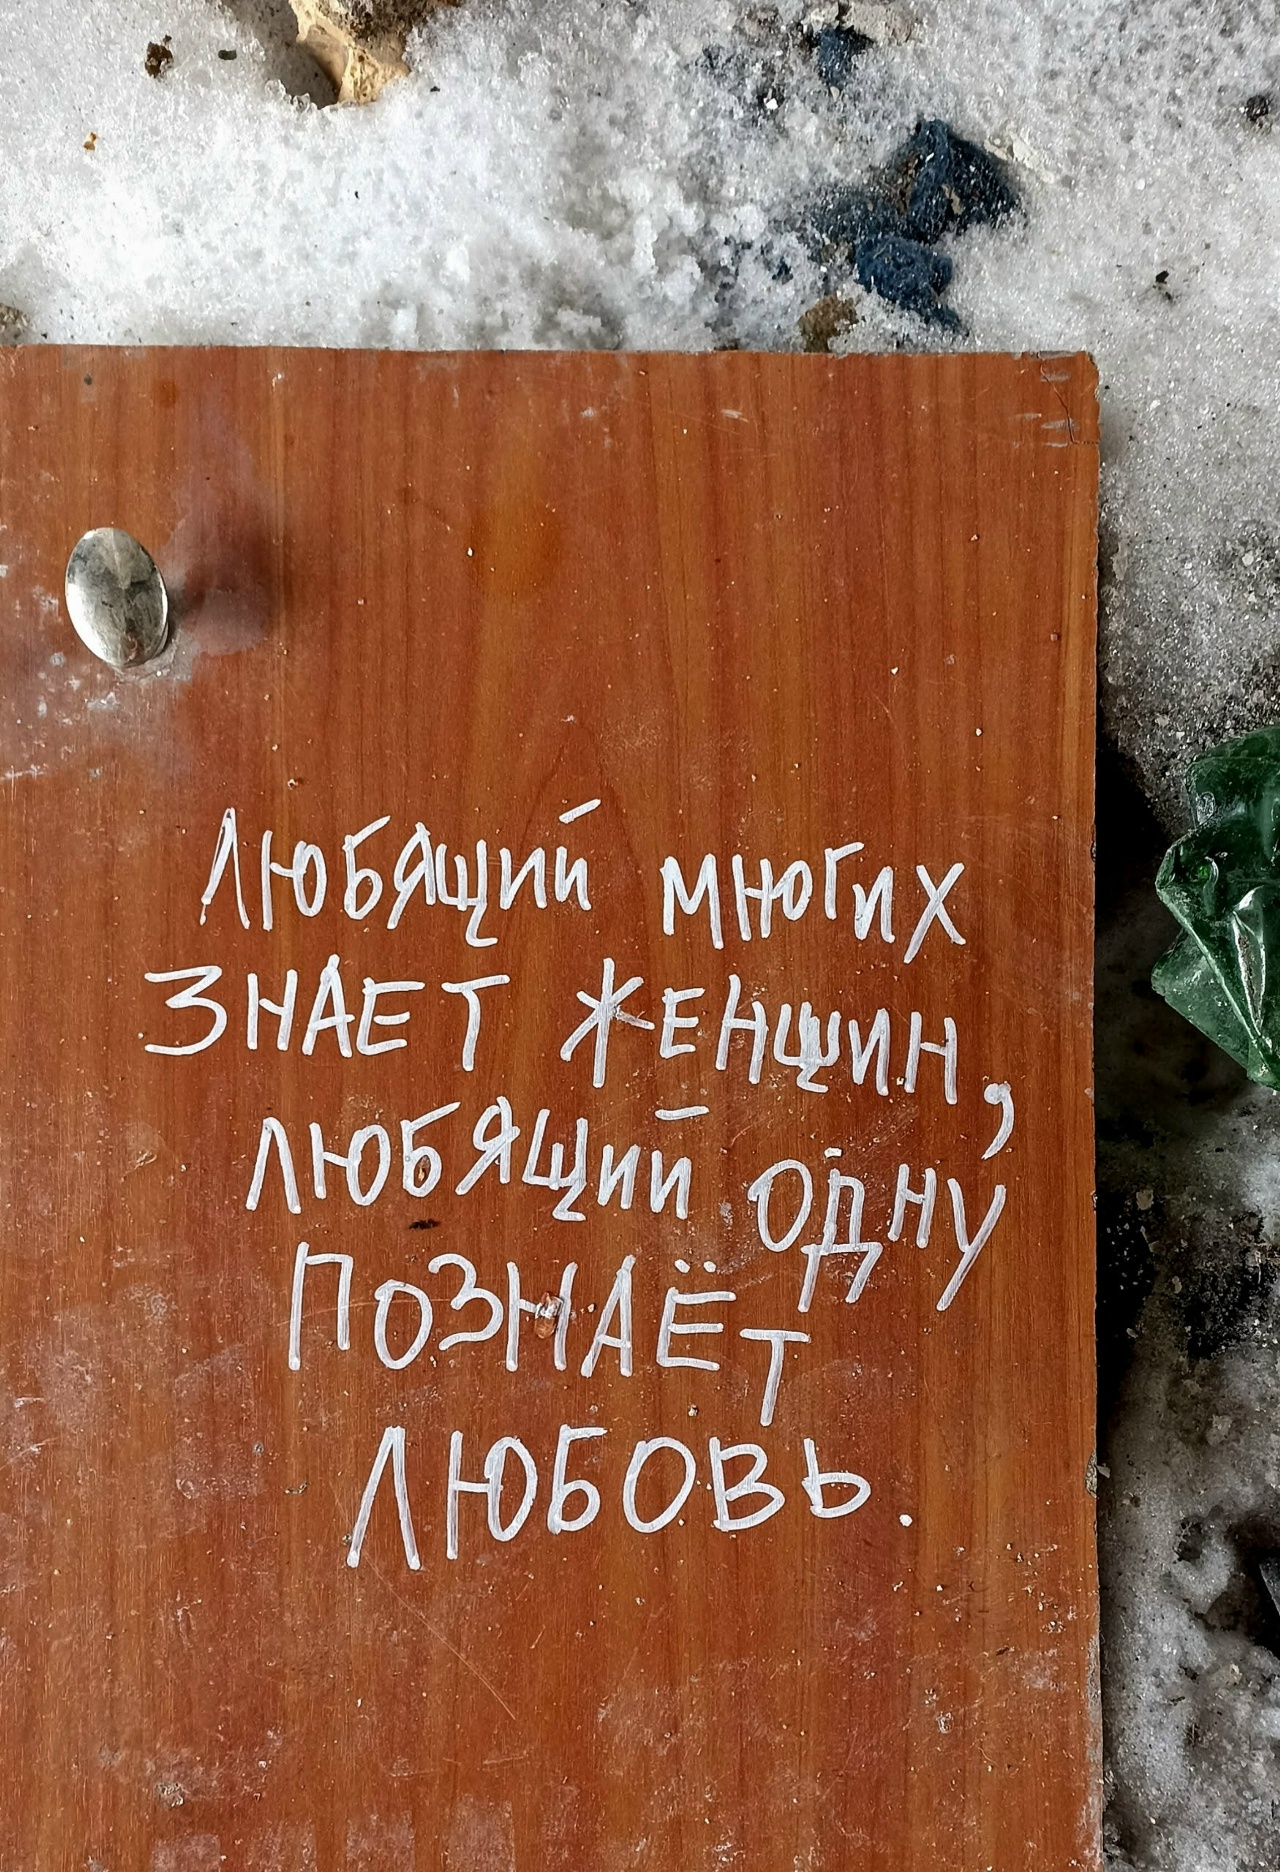 Любящий многих
знает женщин,
любящий одну
познаёт
любовь.